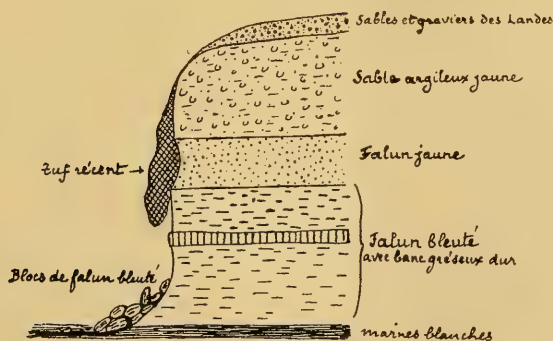 Sables et graviers des Landes
Sable argileux jaune
Falun jaune
Tuf récent
Falun bleuté
avec banc gréseux dur
Blocs de falun bleuté
Marnes blanches